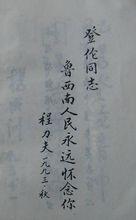 登伦同志
鲁西南人民永远怀念你
程力夫
一九九三·秋